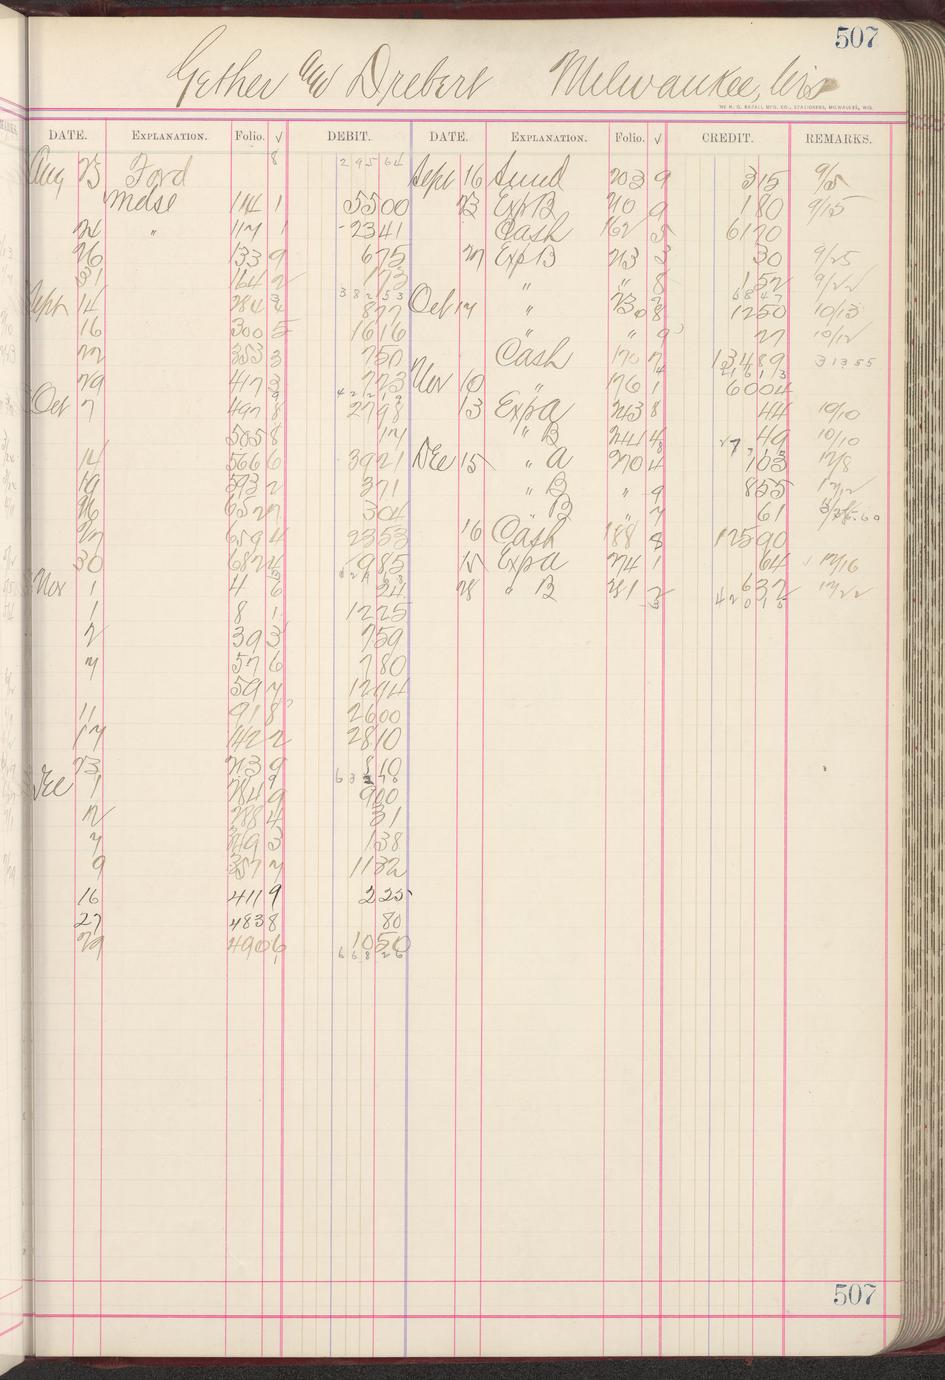 507
Gether and Drebert Milwaukee, Wis
THE H. G. RAZALL MFG. CO., STATIONERS, MILWAUKEE, WIS.
DATE. EXPLANATION. Folio. √ DEBIT. DATE. EXPLANATION. Folio. √ CREDIT. REMARKS.
Aug 23 Ford 8 295 64 Sept 16 Sund 203 9 315 9/5
Mdse 114 1 5500 23 Exp B 210 9 180 9/15
24 " 117 1 2341 Cash 162 5 6170
26 133 9 675 27 Exp B 213 3 30 9/25
31 164 2 173 " " 8 152 9/22
382 53 68 47
Sept 14 284 877 Oct 17 " 230 8 1250 10/13
16 300 5 1616 " " 9 27 10/12
22 353 3 750 Cash 170 7 13489 313 55
29 417 3 773 Nov 10 " 176 1 6004
Oct 7 497 8 2798 13 Exp A 243 8 44 10/10
505 8 17 " B 244 4 49 10/10
14 566 6 3921 Dec 15 " A 270 4 103 12/8
19 593 2 371 " B " 9 855 12/12
26 652 7 304 B 7 61
27 659 4 2353 16 Cash 188 8 12590
30 682 4 985 15 Exp A 274 1 64 12/16
Nov 1 4 6 24 28 " B 281 2 632 12/22
420 15
1 8 1 1225
2 39 3 759
7 57 6 780
59 7 1294
11 91 8 2600
17 142 2 2810
23 213 9 810
Dec 1 284 9 900
2 288 4 31
7 349 3 138
9 357 7 1132
16 411 9 225
27 483 8 80
29 490 6 1050
668 26
507